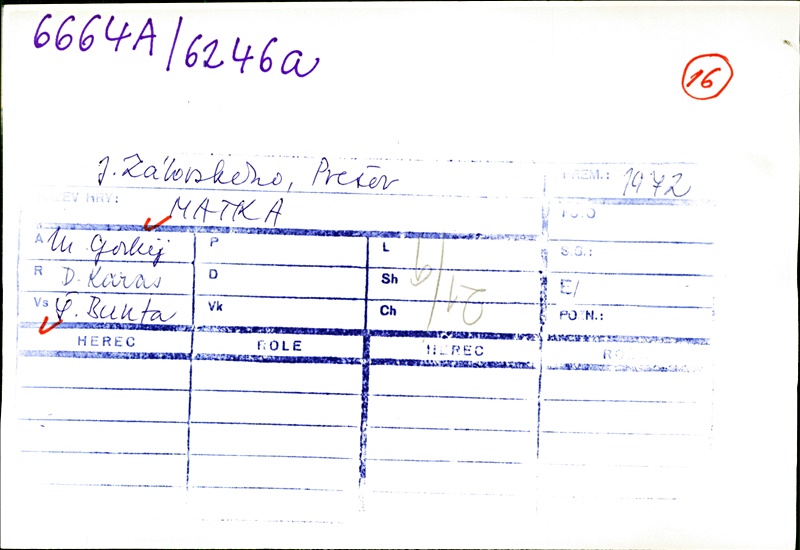 6664A/6246a
16
J. Záborského, Prešov
PREM.: 1972
NÁZEV HRY: MATKA
A M. Gorkij P L
S.G.:
R D. Karas D Sh
E/
Vs Š. Bunta Vk Ch
POZN.:
21/9
HEREC ROLE HEREC RO